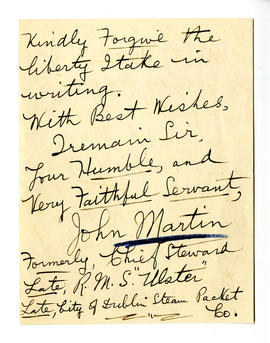 Kindly Forgive the
liberty I take in
writing.
With Best Wishes,
I remain Sir,
Your Humble, and
Very Faithful Servant,
John Martin
Formerly, Chief Steward
Late, R.M.S. "Ulster"
Late, City of Dublin Steam Packet
Co.